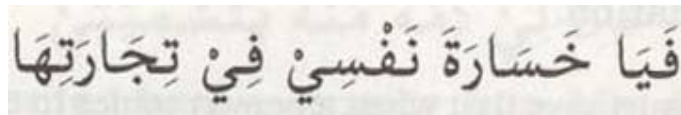 فَيَا خَسَارَةَ نَفْسِيْ فِيْ تِجَارَتِهَا